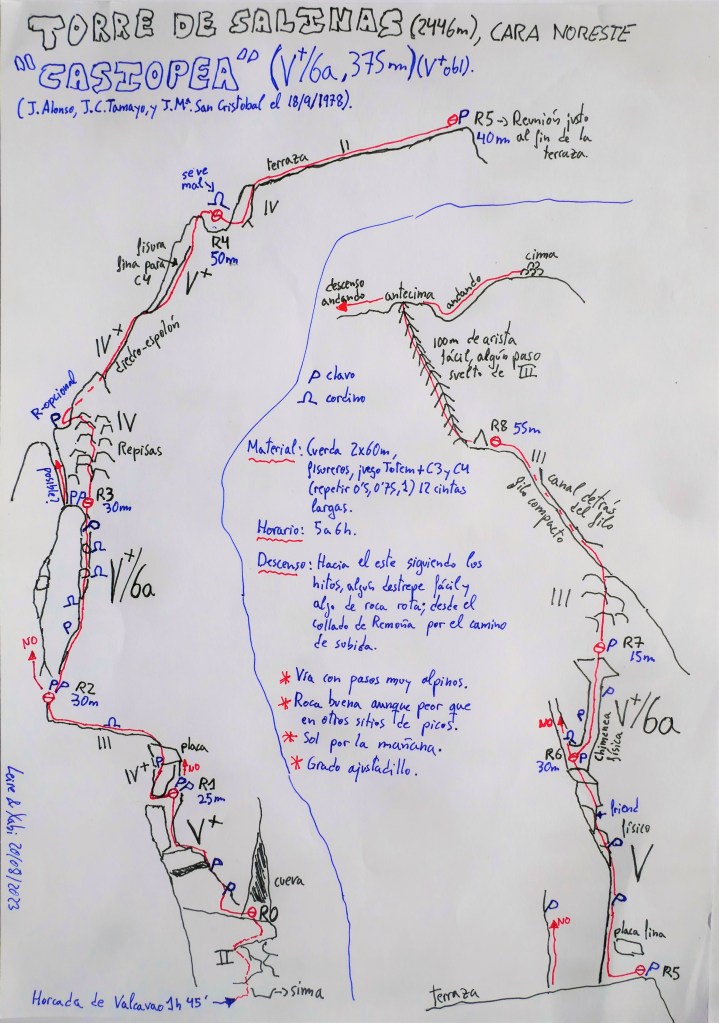 TORRE DE SALINAS (2446m), CARA NORESTE
"CASIOPEA" (V+/6a, 375m)(V+obl).
(J. Alonso, J.C. Tamayo, y J.Mª. San Cristobal el 18/9/1978).
P R5 → Reunión justo
40m al fin de la
terraza.
terraza II
se ve
mal
IV
R4
50m
fisura
fina para
C4
V+
IV+
diedro-espolón
R-opcional
P
IV
Repisas
posible?
PP R3
30m
P
V+/6a
P
NO
PP R2
30m
III
placa
P
NO
IV+
PP R1
25m
V+
P
P
cueva
R0
II
→ sima
Horcada de Valcavao 1h 45'
Leire & Xabi 20/08/2023
cima
descenso
andando
antecima
andando
100m de arista
fácil, algún paso
suelto de III
P clavo
cordino
R8 55m
III
canal detrás
del filo
filo compacto
Material: Cuerda 2x60m,
fisureros, juego Totem + C3 y C4
(repetir 0'5, 0'75, 1) 12 cintas
largas.
Horario: 5 a 6h.
Descenso: Hacia el este siguiendo los
hitos, algún destrepe fácil y
algo de roca rota; desde el
collado de Remoña por el camino
de subida.
* Vía con pasos muy alpinos.
* Roca buena aunque peor que
en otros sitios de picos.
* Sol por la mañana.
* Grado ajustadillo.
III
P R7
15m
P
V+/6a
P
chimenea
física
NO
R6 P
30m
friend
físico
P
V
P
P
NO
placa fina
P R5
terraza